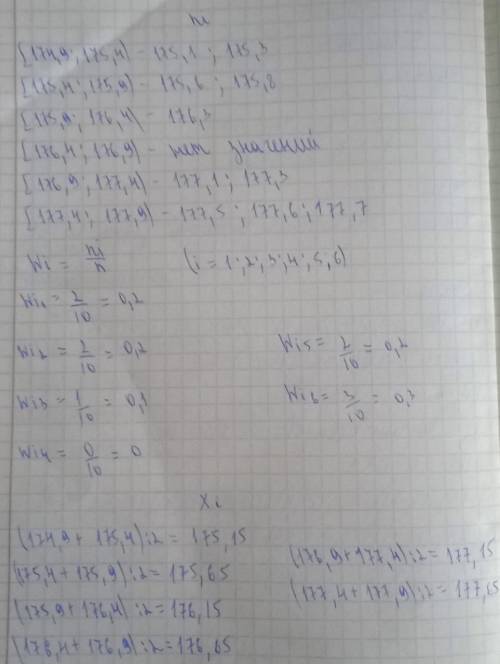 ni
[174,9; 175,4) - 175,1; 175,3
[175,4; 175,9) - 175,6; 175,8
[175,9; 176,4) - 176,3
[176,4; 176,9) - нет значений
[176,9; 177,4) - 177,1; 177,3
[177,4; 177,9) - 177,5; 177,6; 177,7
Wi = ni/n (i = 1; 2; 3; 4; 5; 6)
Wi1 = 2/10 = 0,2
Wi2 = 2/10 = 0,2
Wi3 = 1/10 = 0,1
Wi4 = 0/10 = 0
Wi5 = 2/10 = 0,2
Wi6 = 3/10 = 0,3
Xi
(174,9 + 175,4) : 2 = 175,15
(175,4 + 175,9) : 2 = 175,65
(175,9 + 176,4) : 2 = 176,15
(176,4 + 176,9) : 2 = 176,65
(176,9 + 177,4) : 2 = 177,15
(177,4 + 177,9) : 2 = 177,65